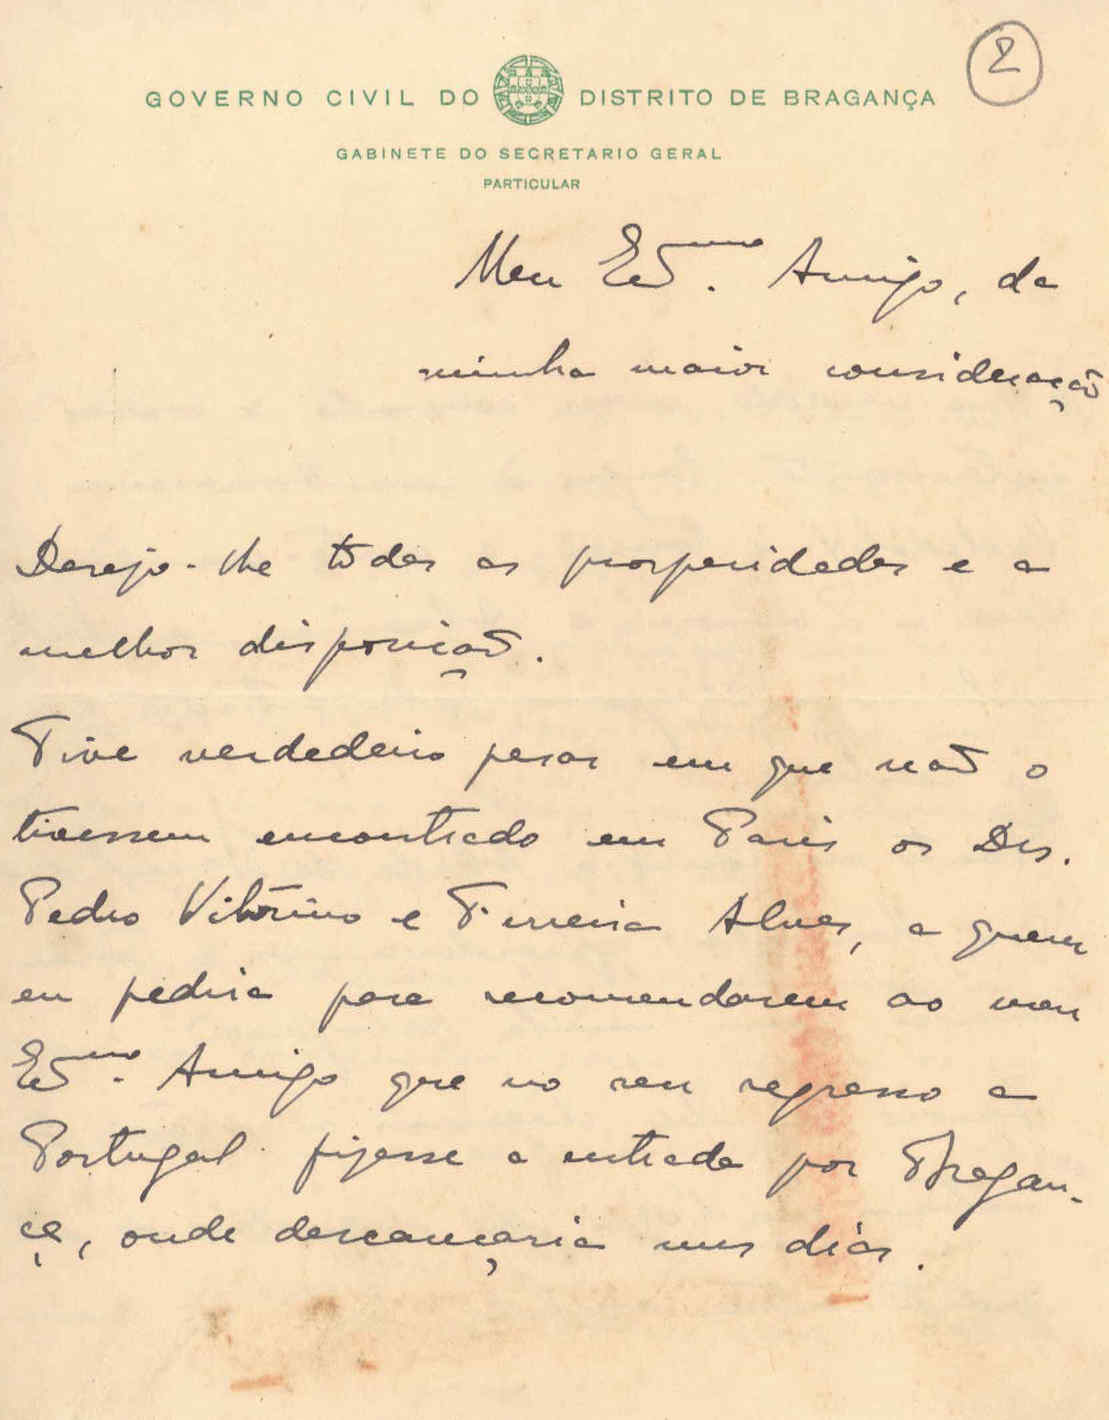 2
GOVERNO CIVIL DO DISTRITO DE BRAGANÇA
GABINETE DO SECRETARIO GERAL
PARTICULAR
Meu Exmo. Amigo, da
minha maior consideração
Desejo-lhe todas as prosperidades e a
melhor disposição.
Tive verdadeiro pesar em que não o
tivessem encontrado em Paris os Drs.
Pedro Vitorino e Ferreira Alves, a quem
eu pedira para recomendarem ao meu
Exmo. Amigo que no seu regresso a
Portugal fizesse a entrada por Bragan-
ça, onde descançaria uns dias.